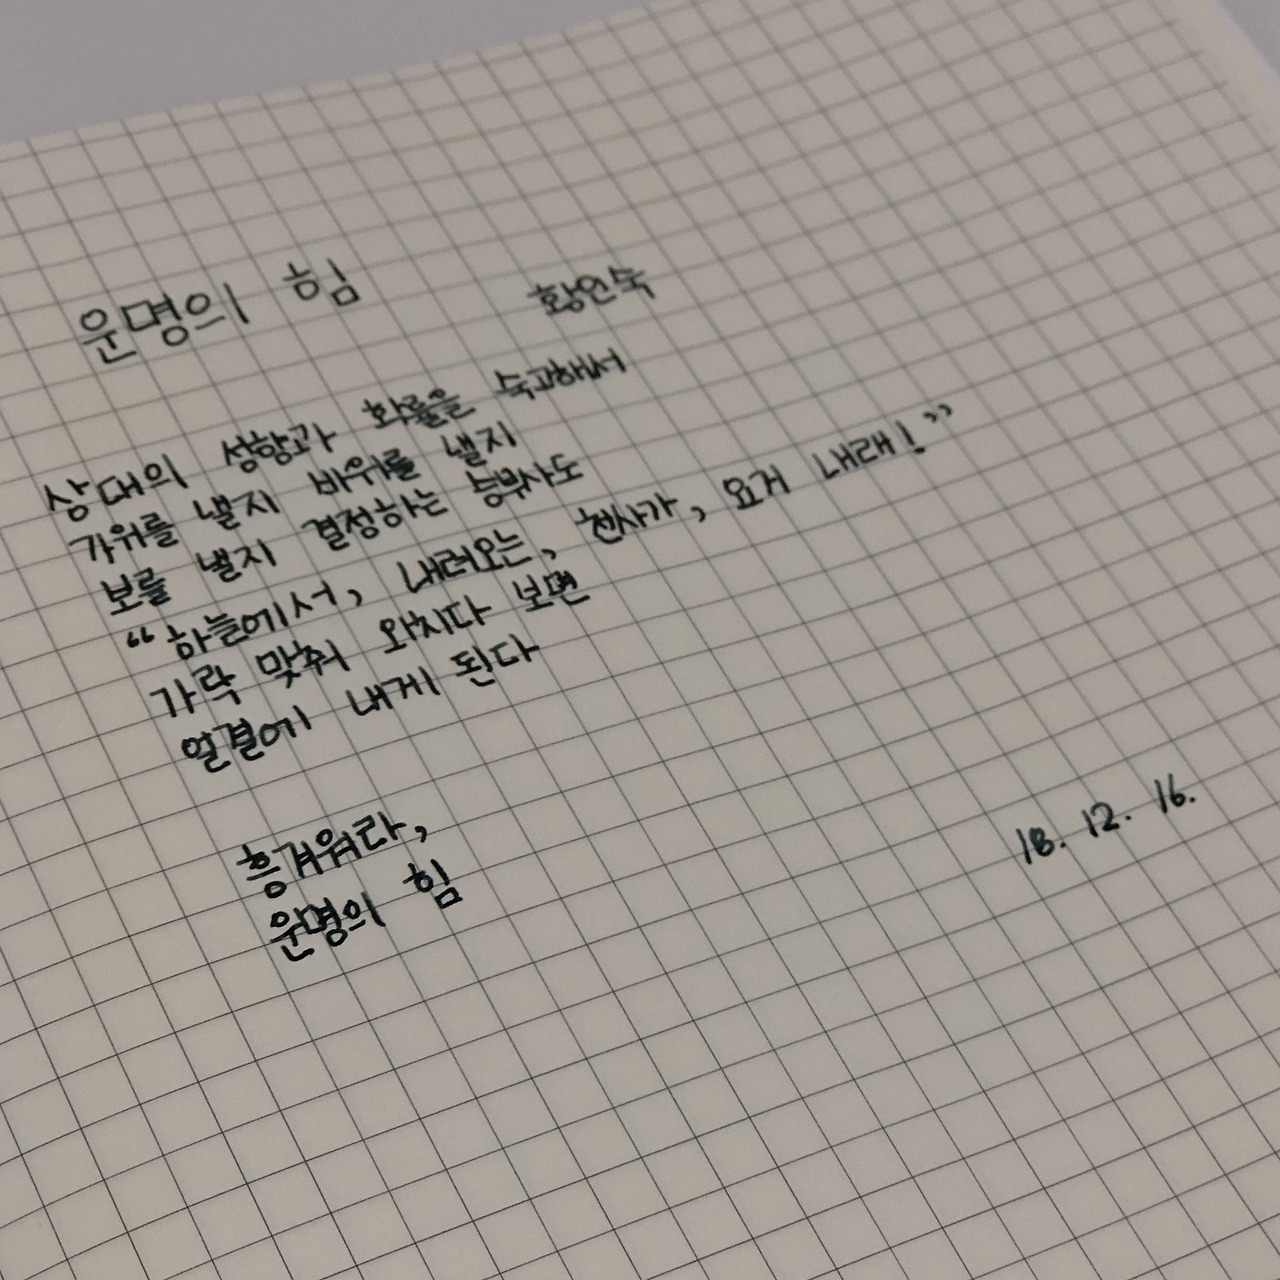 운명의 힘
황인숙
상대의 성향과 확률을 숙고해서
가위를 낼지 바위를 낼지
보를 낼지 결정하는 승부사도
“하늘에서, 내려오는, 천사가, 요거 내래!”
가락 맞춰 외치다 보면
얼결에 내게 된다
흥겨워라,
운명의 힘
18. 12. 16.